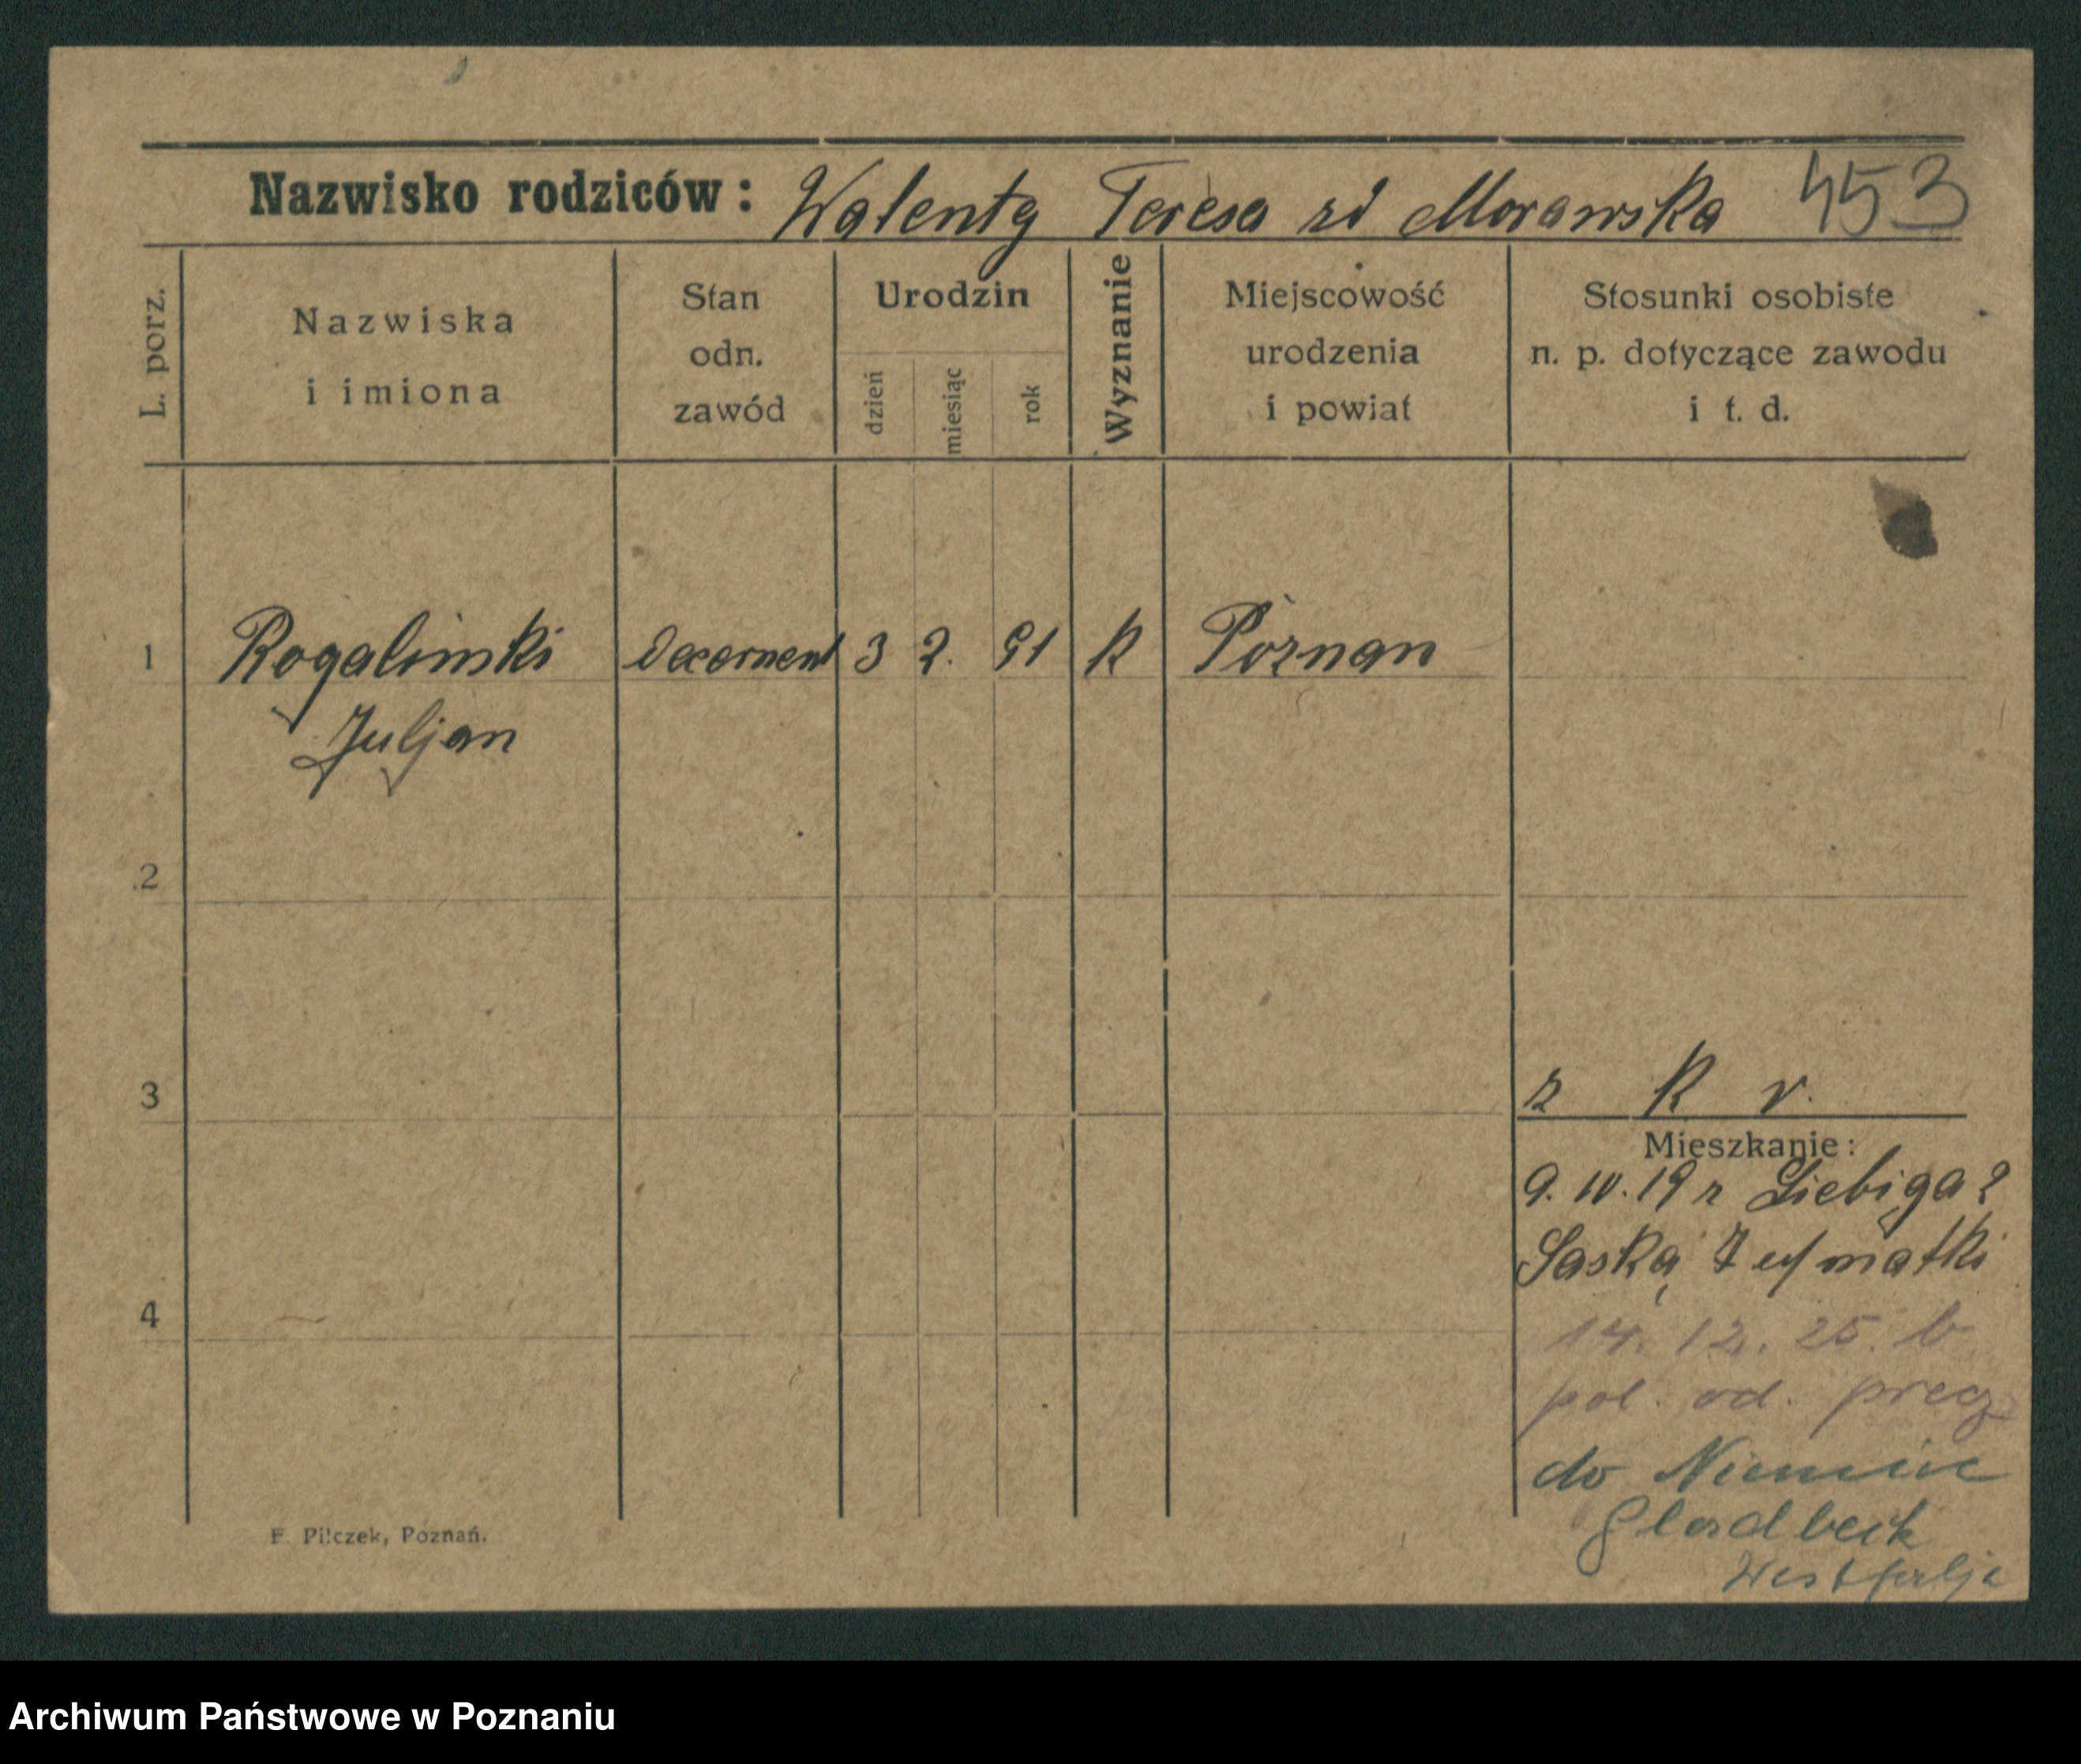 Nazwisko rodziców: Walenty Teresa zd Morawska 453
L. porz.
Nazwiska i imiona
Stan odn. zawód
Urodzin
dzień
miesiąc
rok
Wyznanie
Miejscowość urodzenia i powiat
Stosunki osobiste n. p. dotyczące zawodu i t. d.
1 Rogalinski Decernent 3 2. 91 k Poznan
Juljan
2
3
z k v.
Mieszkanie:
9. IV. 19 r Liebiga 2
Saska 7 u/ matki
4
14. 12. 25. b
pol. od.
do Niemiec
Gladbeck
Westfalja
F. Pilczek, Poznań.
Archiwum Państwowe w Poznaniu